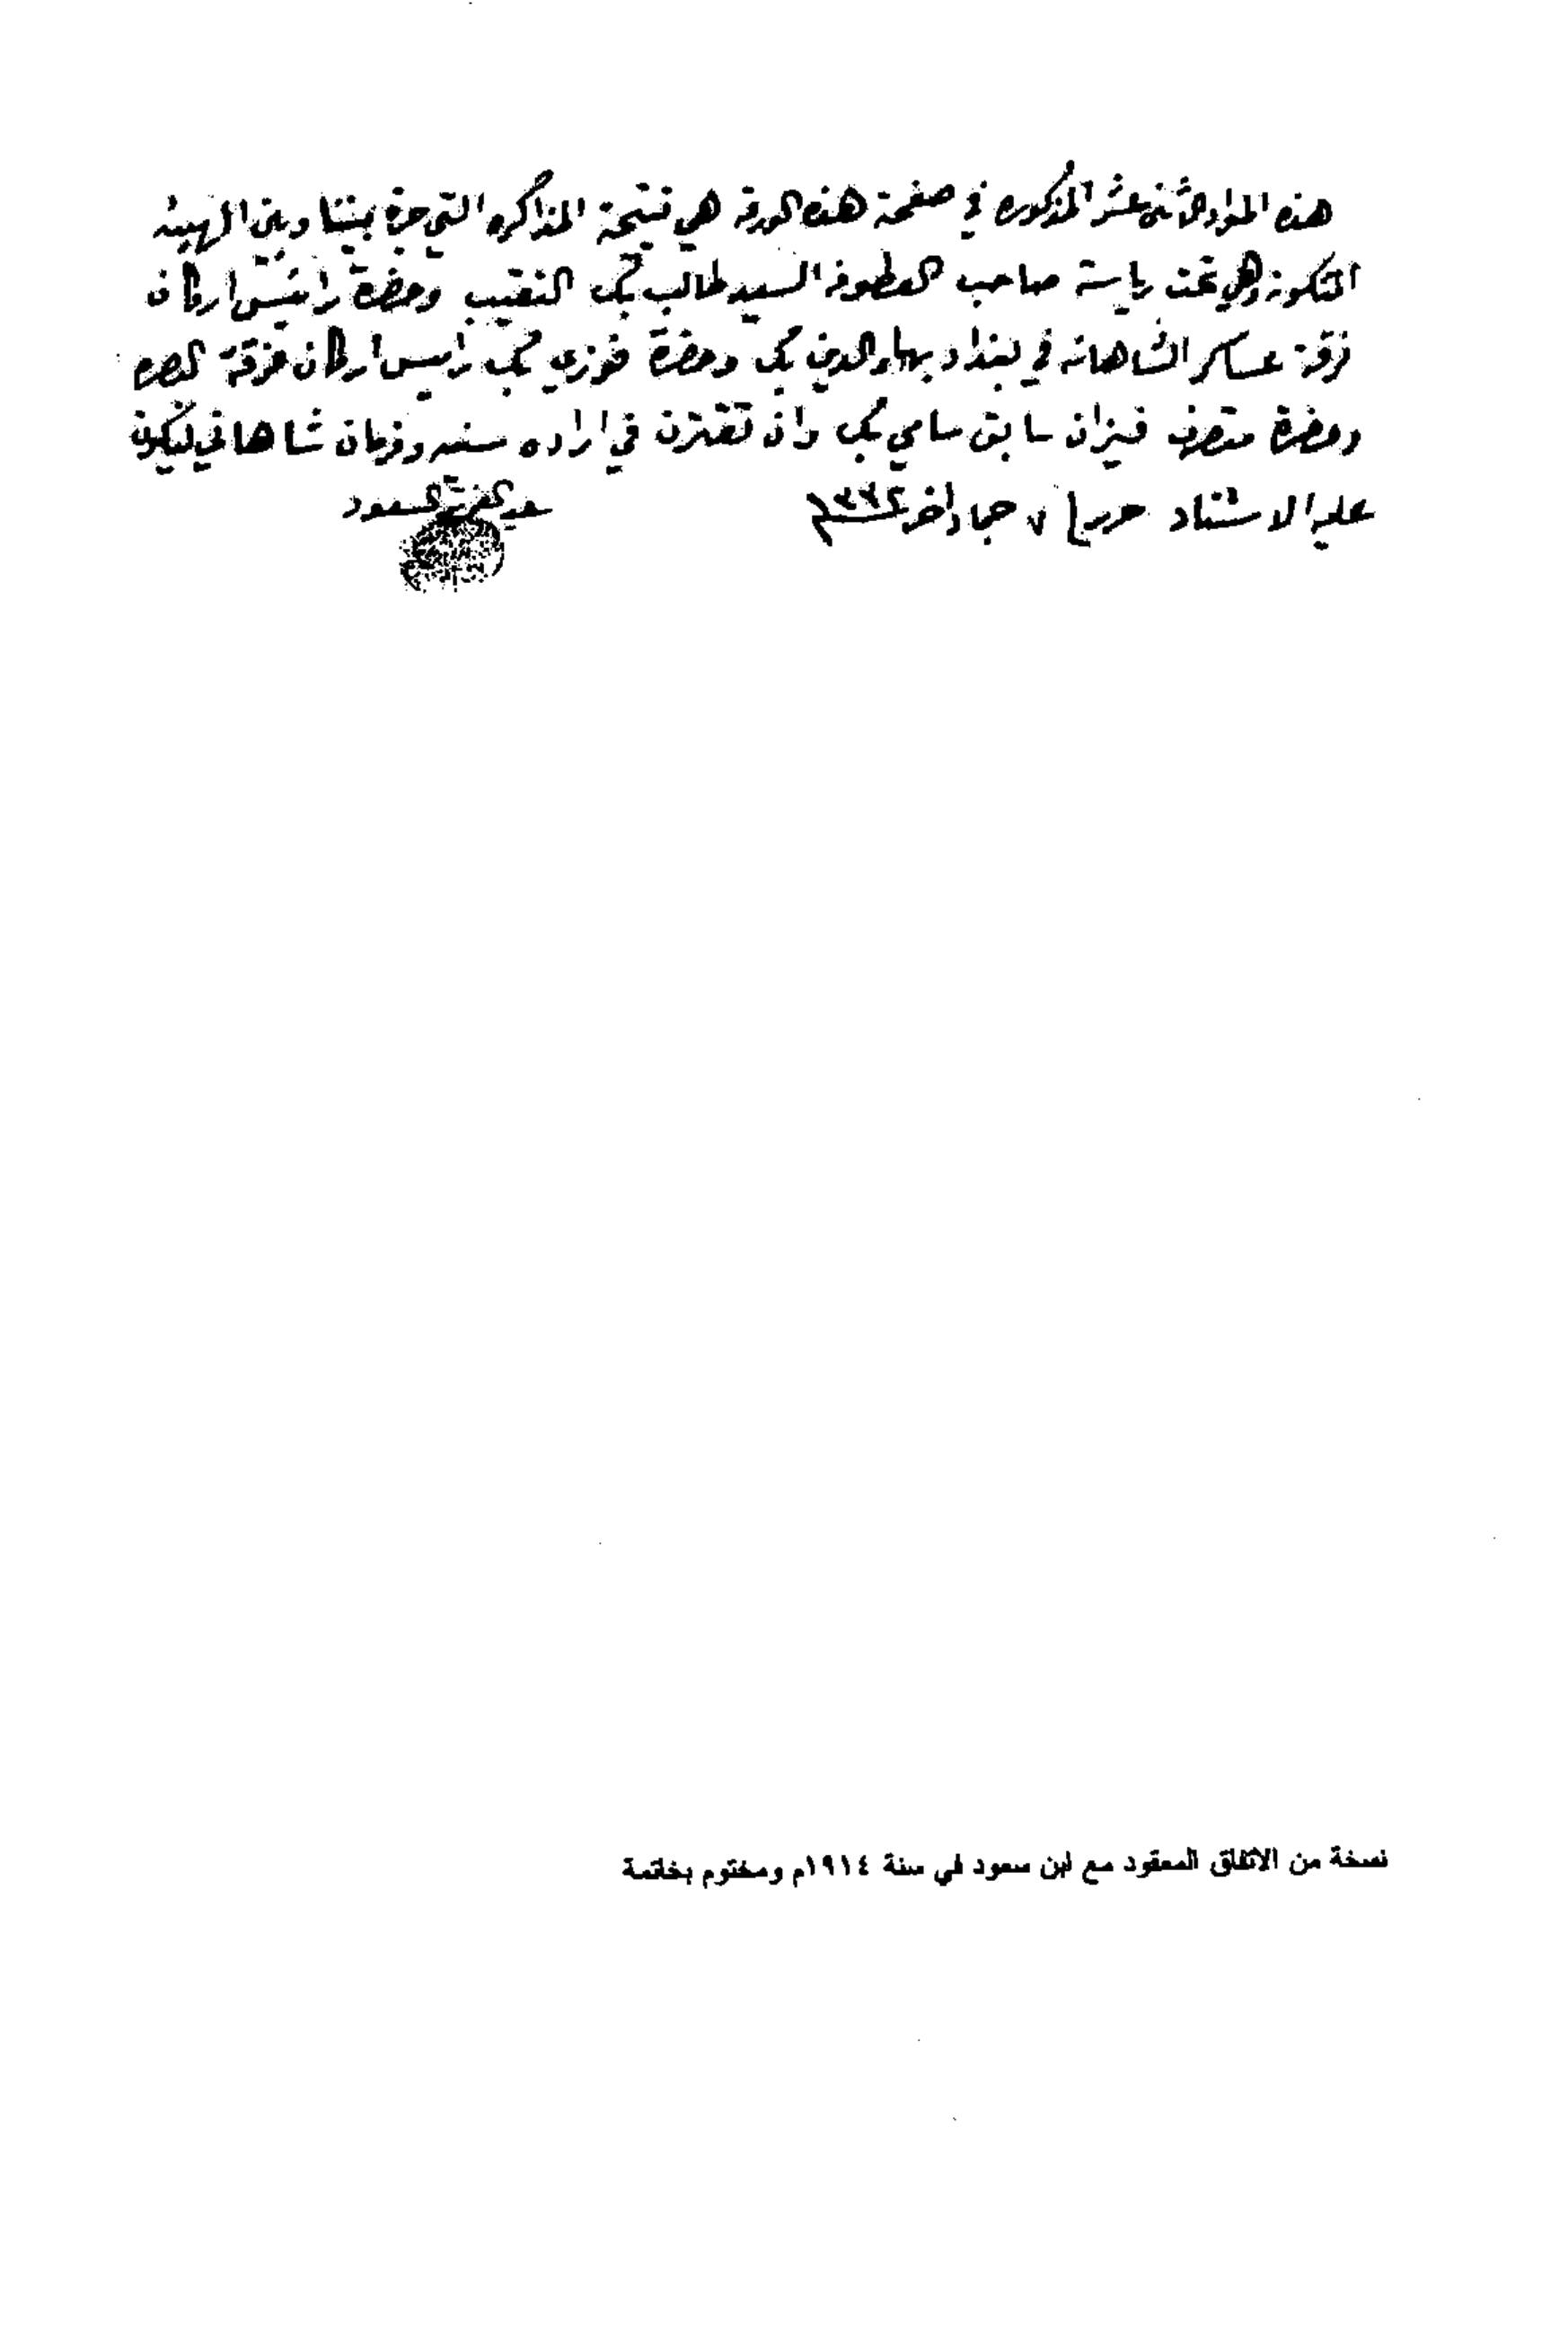 هذه المواد الاثنى عشر المذكوره في صفحة هذه الورقه هي نتيجة المذاكره التي جرة بيننا وبين الهيئه
المتكونه وهي تحت رياسة صاحب العطوفه السيد طالب بك النقيب وحضرة رائيس اركان
فرقة عساكر الشاهانه في بغداد بهاء الدين بك وحضرة فوزي بك رائيس اركان فرقة البصره
وحضرة متصرف فيزان سابق سامي بك وان تقترن في اراده سنيه وفرمان شاهاني ليكون
عليه الاستناد حرر ٧ جماد اخر ١٣٣٢
عبد العزيز السعود
نسخة من الاتفاق المعقود مع ابن سعود في سنة ١٩١٤م ومختوم بخاتمة